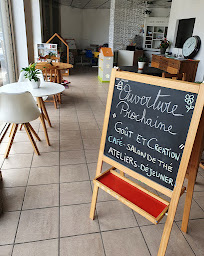 Ouverture
Prochaine
GOÛT ET CRÉATION
CAFÉ-SALON DE THÉ
ATELIERS-DÉJEUNER